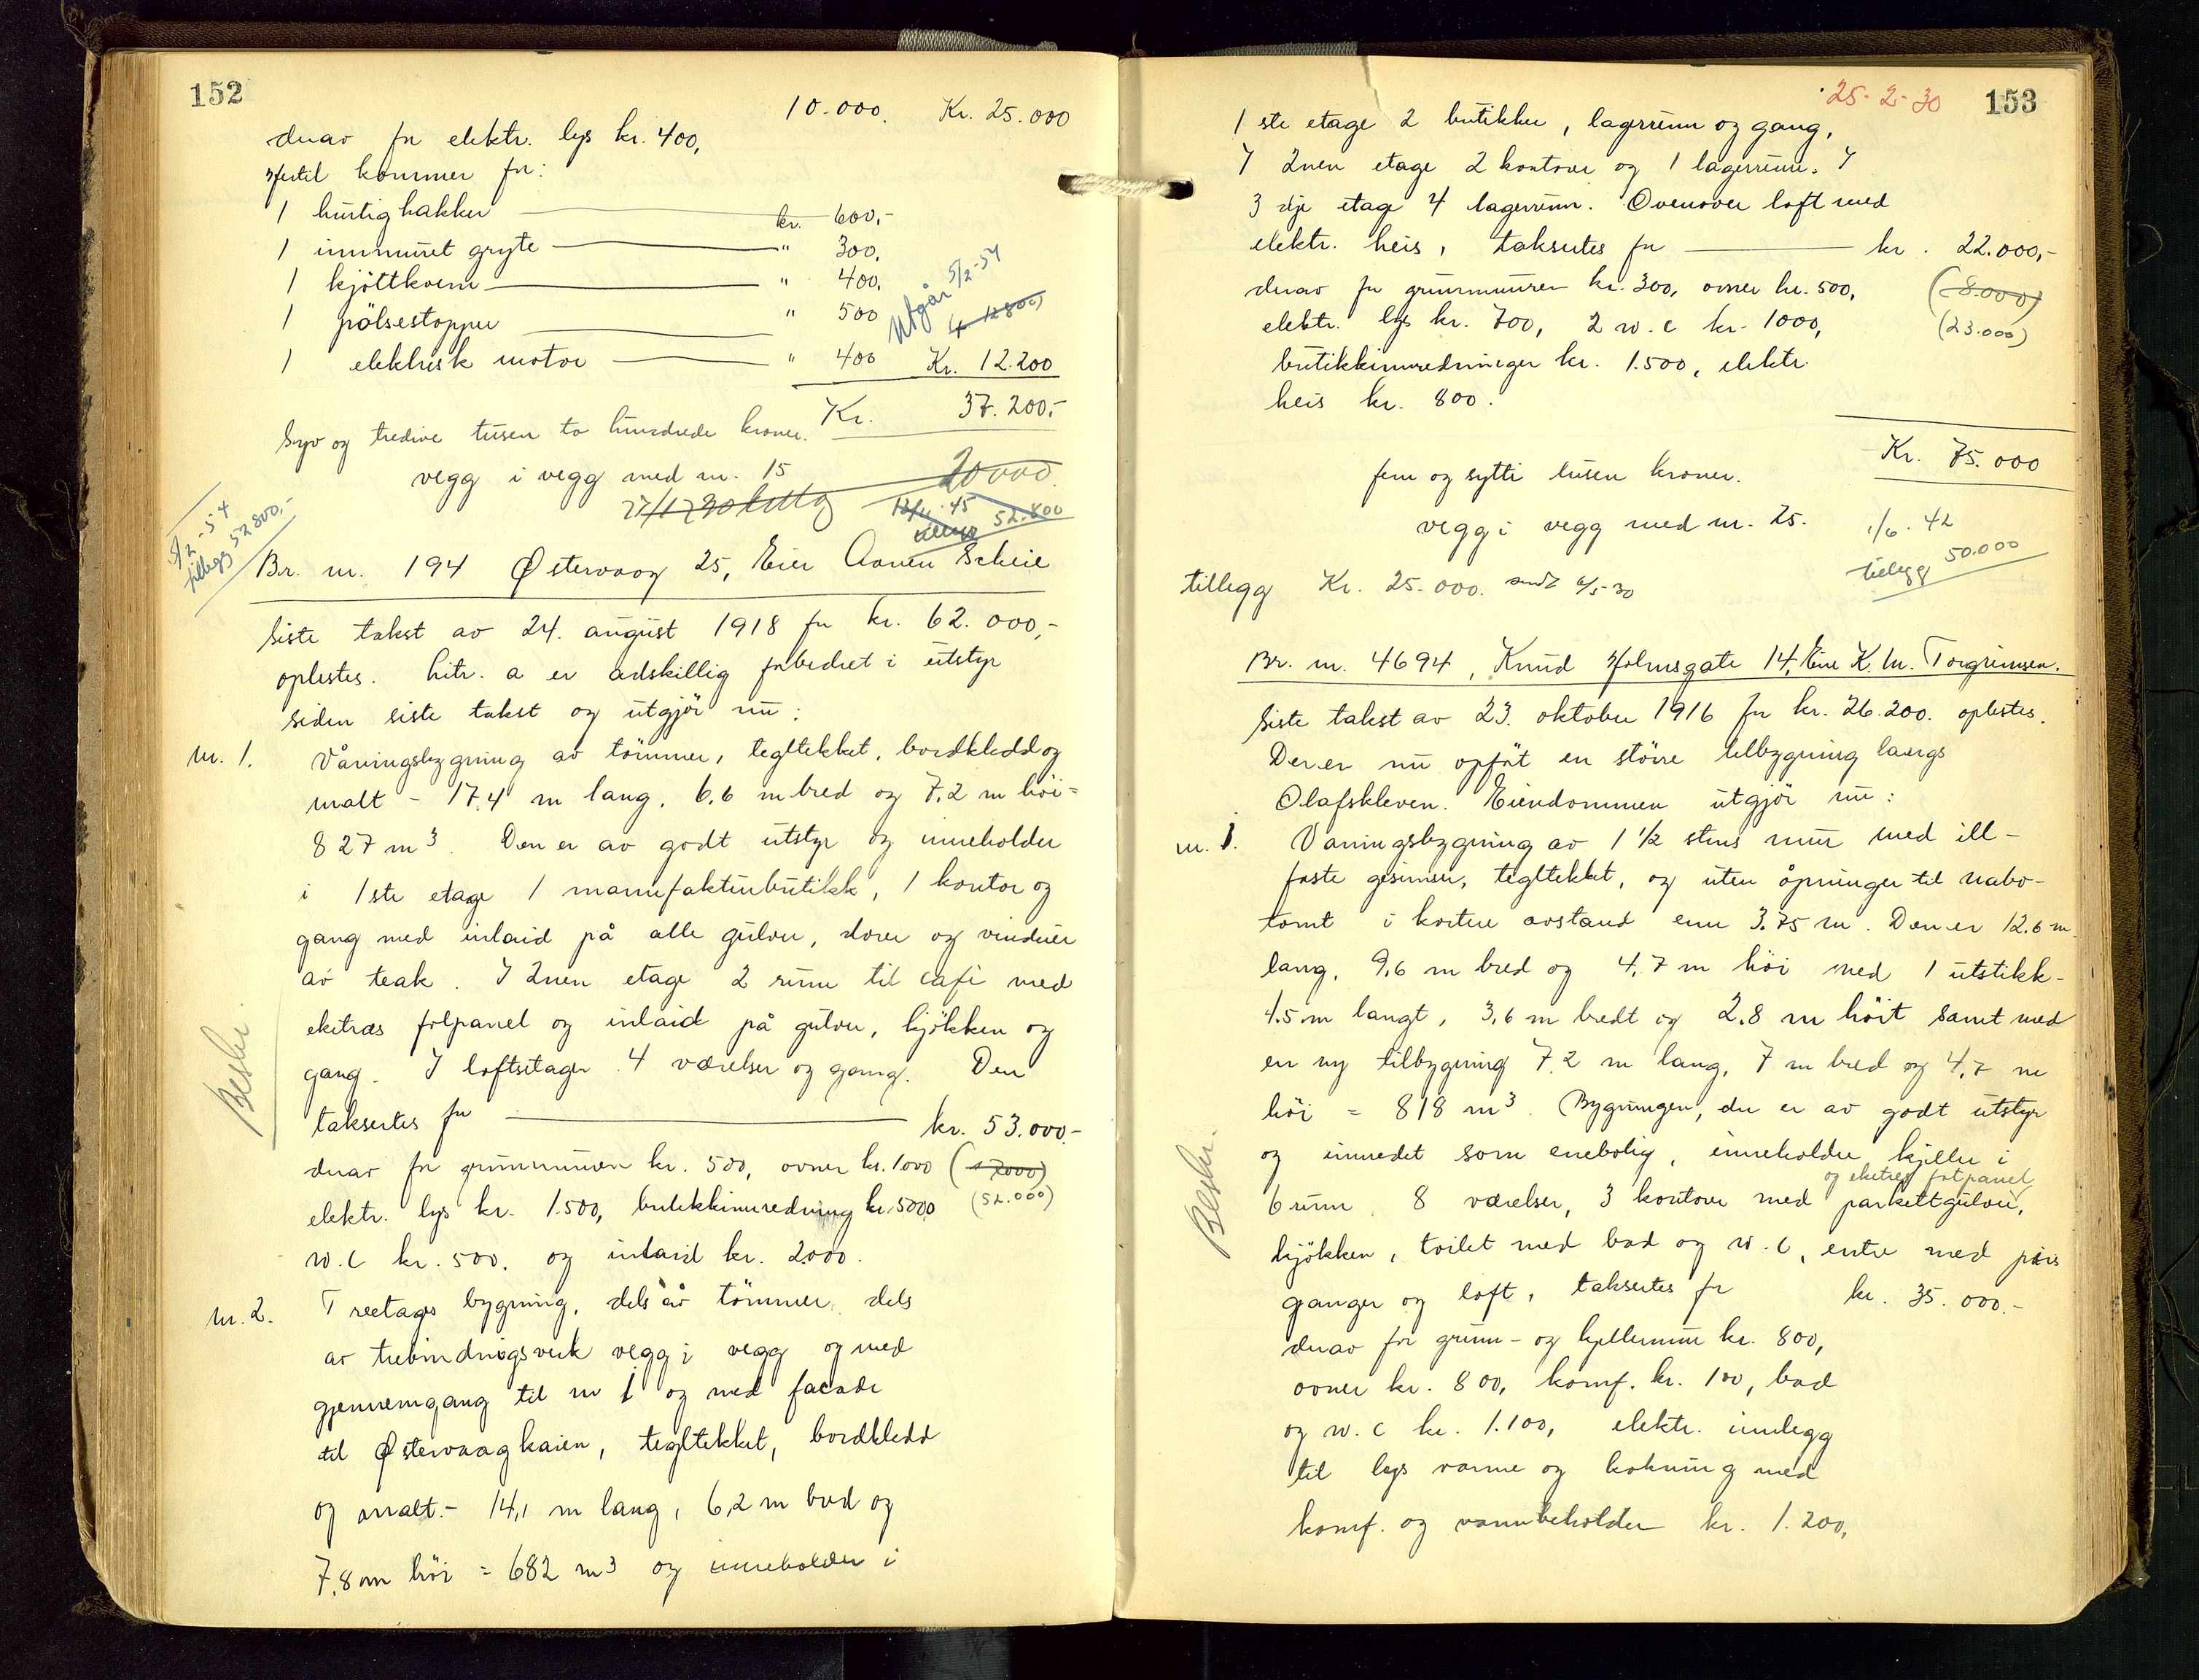 152
10.000. Kr. 25.000
derav for elektr. lys kr. 400,
Hertil kommer for:
1 hurtighakker kr. 600,-
1 innmuret gryte " 300,
1 kjöttkvern " 400,
1 pölsestopper " 500
1 elektrisk motor " 400 Kr. 12.200
Utgår 5/2-54
Kr. 37.200,-
Syv og tredive tusen to hundrede kroner.
vegg i vegg med nr. 15 20000.
12/11 45 tillegg 52.800
5/2-54
tillegg 52800,-
Br. nr. 194 Østervaag 25, Eier Aanen Scheie
Siste takst av 24. august 1918 for kr. 62.000,-
oplestes. Litr. a er adskillig forbedret i utstyr
siden siste takst og utgjör nu:
nr. 1. Våningsbygning av tömmer, tegltekket, bordkledd og
malt - 17,4 m lang, 6,6 m bred og 7,2 m höi =
827 m³. Den er av godt utstyr og inneholder
i 1ste etage 1 manufakturbutikk, 1 kontor og
gang med inlaid på alle gulver, dører og vinduer
av teak. I 2nen etage 2 rum til café med
eketræs fotpanel og inlaid på gulver, kjökken og
gang. I loftsetagen 4 værelser og gang. Den
takseres for kr. 53.000.-
Beskr.
derav for grunnmuren kr. 500, ovner kr. 1000 (17000)
elektr. lys kr. 1.500, butikkinnredning kr. 5000 (52.000)
w.c kr. 500, og inlaid kr. 2000.
nr. 2. Treetages bygning, dels av tömmer, dels
av trebindingsverk vegg i vegg og med
gjennemgang til nr 1 og med facade
til Østervaagkaien, tegltekket, bordkledd
og malt.- 14,1 m lang, 6,2 m bred og
7,8 m höi = 682 m³ og inneholder i
25-2-30 153
1ste etage 2 butikker, lagerrum og gang,
I 2nen etage 2 kontorer og 1 lagerrum. I
3dje etage 4 lagerrum. Ovenover loft med
elektr. heis, takseres for kr. 22.000,-
derav for grunnmuren kr. 300, ovner kr. 500, (8.000)
elektr. lys kr. 700, 2 w.c kr. 1000, (23.000)
butikkinnredninger kr. 1.500, elektr.
heis kr. 800.
Kr. 75.000
fem og sytti tusen kroner.
vegg i vegg med nr. 25. 1/6. 42
tillegg 50.000
tillegg Kr. 25.000. sendt 6/5-30
Br. nr. 4694, Knud Holmsgate 14, Eier K. M. Torgrimsen.
Siste takst av 23. oktober 1916 for kr. 26.200. oplestes.
Der er nu opfört en större tilbygning langs
Olafskleven. Eiendommen utgjör nu:
nr. 1. Våningsbygning av 1 1/2 stens mur med ill-
faste gesimser, tegltekket, og uten åpninger til nabo-
tomt i kortere avstand enn 3.75 m. Den er 12.6 m
lang, 9,6 m bred og 4,7 m höi med 1 utstikk-
4.5 m langt, 3,6 m bredt og 2,8 m höit samt med
en ny tilbygning 7,2 m lang, 7 m bred og 4,7 m
höi = 818 m³. Bygningen, der er av godt utstyr
og innredet som enebolig, inneholder kjeller i
og eketres fotpanel
6 rum, 8 værelser, 3 kontorer med parkettgulver,
kjökken, toilet med bad og w.c, entre med peis
ganger og loft, takseres for kr. 35.000.-
Beskr.
derav for grunn- og kjellermur kr. 800,
ovner kr. 800, komf. kr. 100, bad
og w.c kr. 1.100, elektr. innlegg
til lys varme og kokning med
komf. og vannbeholder kr. 1.200,